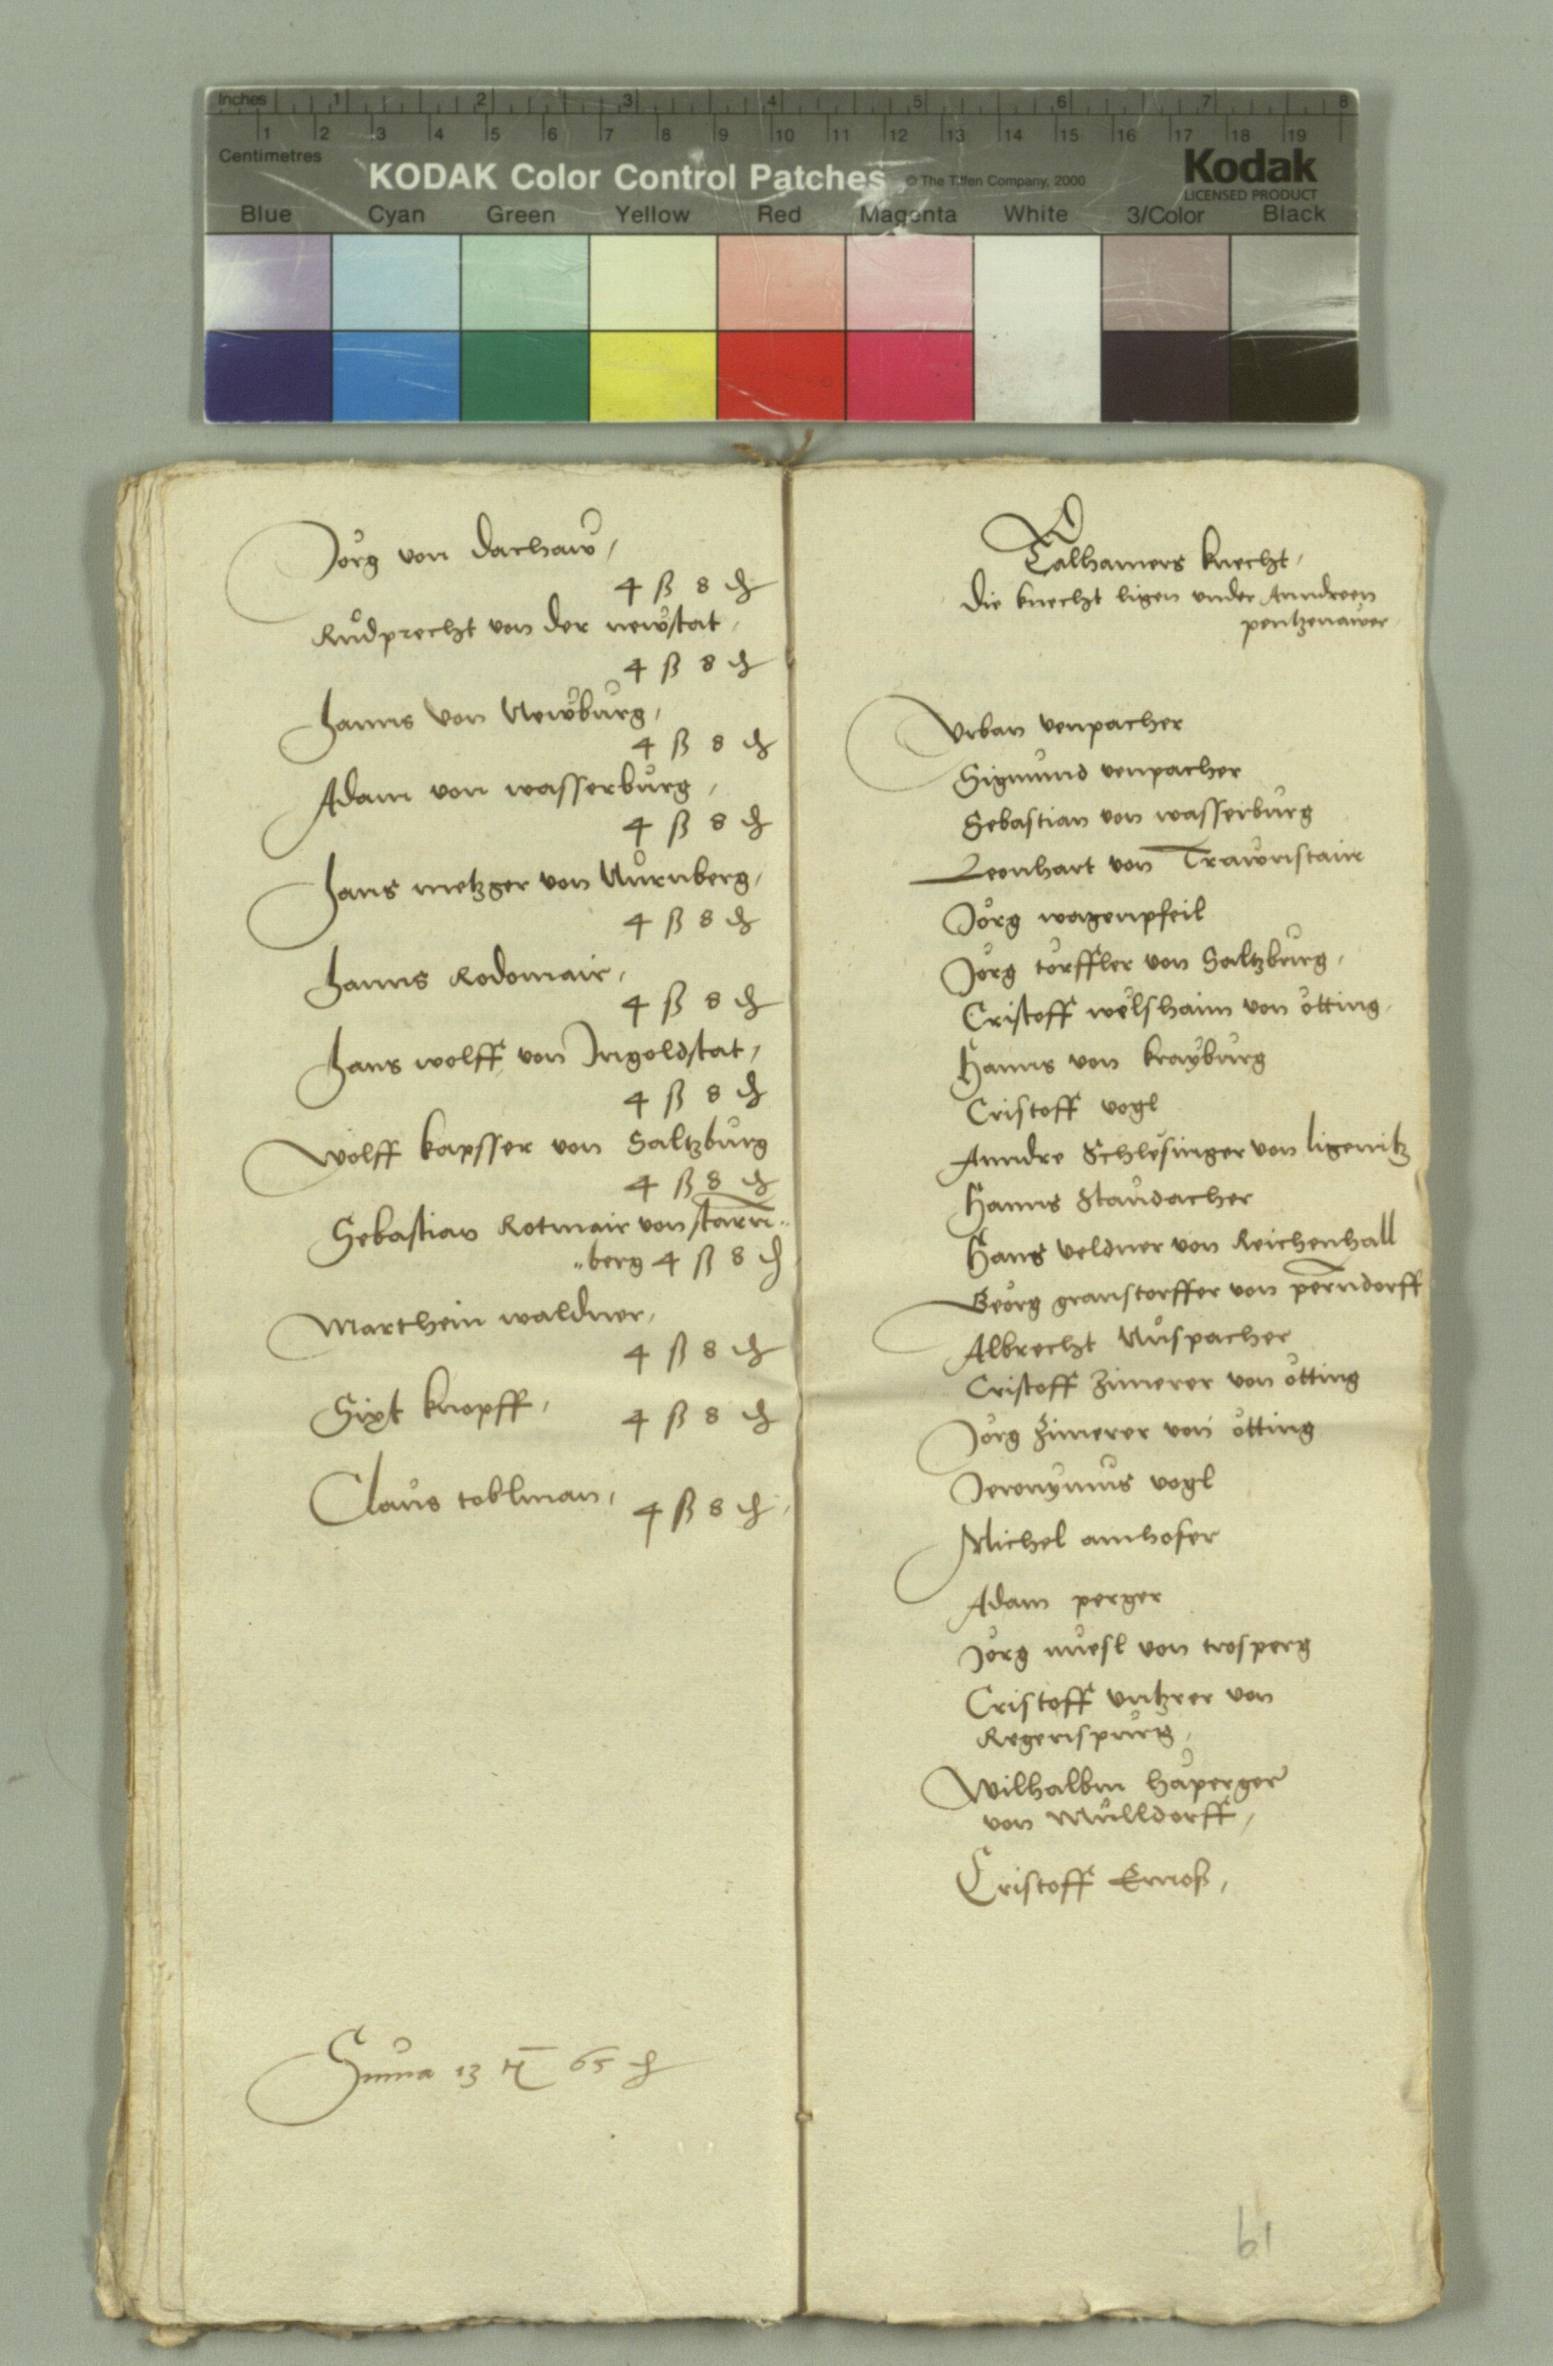 Inches 1 2 3 4 5 6 7 8
1 2 3 4 5 6 7 8 9 10 11 12 13 14 15 16 17 18 19
Centimetres
KODAK Color Control Patches © The Tiffen Company, 2000 Kodak
LICENSED PRODUCT
Blue Cyan Green Yellow Red Magenta White 3/Color Black
Jorg von dachaw,
4 ß 8 ₰
Rudprecht von der newstat,
4 ß 8 ₰
Hanns von Newburg,
4 ß 8 ₰
Adam von wasserburg,
4 ß 8 ₰
Hans metzger von Nurnberg,
4 ß 8 ₰
Hanns Rodomair,
4 ß 8 ₰
Hans wolff von Ingoldstat,
4 ß 8 ₰
Wolff kapsser von Saltzburg
4 ß 8 ₰
Sebastian Rotmair von starn
berg 4 ß 8 ₰
Marthein waldner,
4 ß 8 ₰
Sixt knopff, 4 ß 8 ₰
Claus toblman, 4 ß 8 ₰,
Suma 13 65 ₰
Talhamers knecht,
Die knecht ligen under Anndreen
pentzenawer
Urban venpacher
Sigmund venpacher
Sebastian von wasserburg
Leonhart von Trawnstain
Jörg wagenpfeil
Jörg törffler von Saltzburg,
Cristoff welshaim von ötting,
Hanns von krayburg
Cristoff vogl
Anndre Schlesinger von ligenitz
Hanns Staudacher
Hans veldner von Reichenhall
Georg granstorffer von perndorff
Albrecht Nuspacher
Cristoff Zimerer von ötting
Jörg Zimerer von ötting
Jeronymus vogl
Michel amhofer
Adam perger
Jörg muesl von trosperg
Cristoff untzrer von
Regenspurg,
Wilhalbm haperger
von Mulldorff,
Cristoff Ernoß,
61